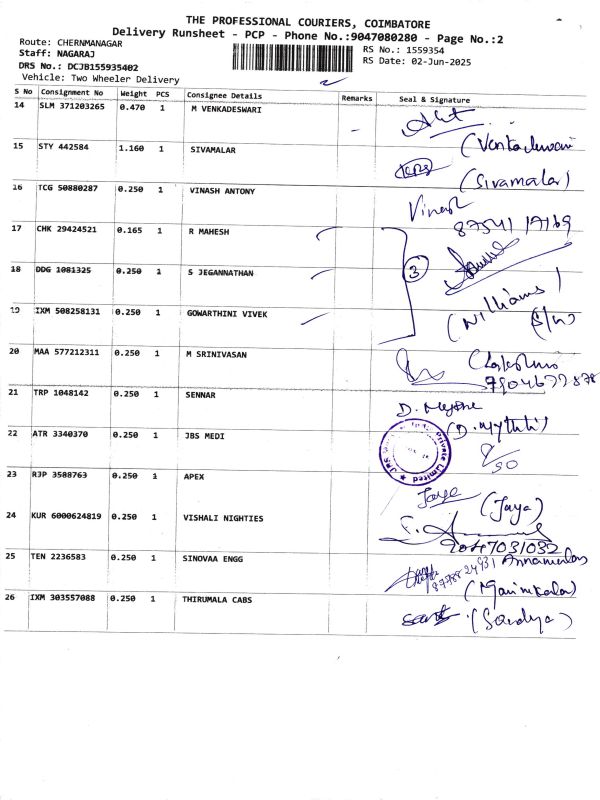 THE PROFESSIONAL COURIERS, COIMBATORE
Delivery Runsheet - PCP - Phone No.:9047080280 - Page No.:2
Route: CHERNMANAGAR
RS No.: 1559354
Staff: NAGARAJ
RS Date: 02-Jun-2025
DRS No.: DCJB155935402
Vehicle: Two Wheeler Delivery
S No Consignment No Weight PCS Consignee Details Remarks Seal & Signature
14 SLM 371203265 0.470 1 M VENKADESWARI
15 STY 442584 1.160 1 SIVAMALAR
(Sivamalar)
16 TCG 50880287 0.250 1 VINASH ANTONY
Vinash
17 CHK 29424521 0.165 1 R MAHESH
87541 17169
3
18 DDG 1081325 0.250 1 S JEGANNATHAN
19 IXM 508258131 0.250 1 GOWARTHINI VIVEK
(Williams)
S/w
20 MAA 577212311 0.250 1 M SRINIVASAN
21 TRP 1048142 0.250 1 SENNAR
22 ATR 3340370 0.250 1 JBS MEDI
(D. Mythili)
Private Limited
23 RJP 3508763 0.250 1 APEX
Jaya (Jaya)
24 KUR 6000624819 0.250 1 VISHALI NIGHTIES
9047031032
25 TEN 2236583 0.250 1 SINOVAA ENGG
Annamalai
(Manimkala)
26 IXM 303557088 0.250 1 THIRUMALA CABS
(Sandya)